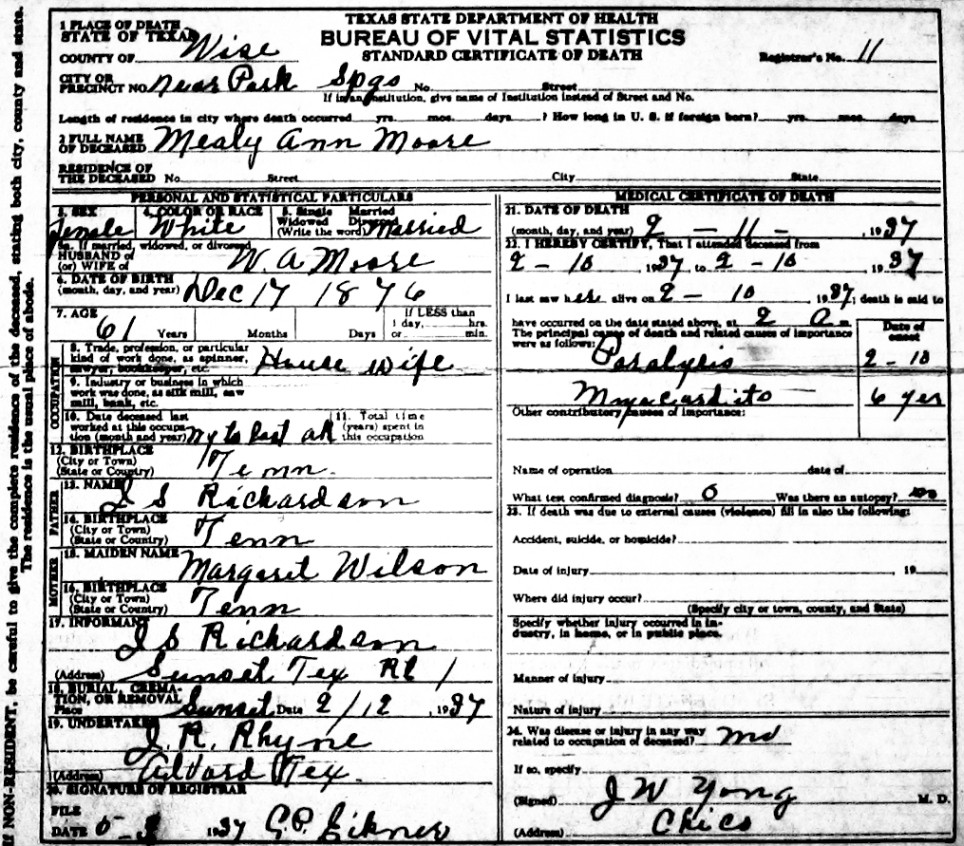 TEXAS STATE DEPARTMENT OF HEALTH
BUREAU OF VITAL STATISTICS
STANDARD CERTIFICATE OF DEATH
Registrar's No. 11
1 PLACE OF DEATH
STATE OF TEXAS
COUNTY OF Wise
CITY OR
PRECINCT NO. near Park Spgs No. Street
If in an institution, give name of Institution instead of Street and No.
Length of residence in city where death occurred yrs. mos. days ? How long in U. S. if foreign born? yrs. mos. days
2 FULL NAME
OF DECEASED Mealy Ann Moore
RESIDENCE OF
THE DECEASED No. Street City State
PERSONAL AND STATISTICAL PARTICULARS
3. SEX 4. COLOR OR RACE 5. Single Married
Widowed Divorced
Female White (Write the word) Married
5a. If married, widowed, or divorced
HUSBAND of
(or) WIFE of W. A Moore
6. DATE OF BIRTH
(month, day, and year) Dec 17 1876
7. AGE If LESS than
1 day, hrs.
61 Years Months Days or min.
OCCUPATION
8. Trade, profession, or particular
kind of work done, as spinner,
sawyer, bookkeeper, etc. House wife
9. Industry or business in which
work was done, as silk mill, saw
mill, bank, etc.
10. Date deceased last 11. Total time
worked at this occupa- (years) spent in
tion (month and year) this occupation
12. BIRTHPLACE
(City or Town)
(State or Country) Tenn.
FATHER
13. NAME J S Richardson
14. BIRTHPLACE
(City or Town)
(State or Country) Tenn
MOTHER
15. MAIDEN NAME Margaret Wilson
16. BIRTHPLACE
(City or Town)
(State or Country) Tenn
17. INFORMANT J S Richardson
(Address) Sunset Tex Rt 1
18. BURIAL, CREMA-
TION, OR REMOVAL
Place Sunset Date 2/12, 1937
19. UNDERTAKER J. R. Rhyne
(Address) Alvord Tex.
20. SIGNATURE OF REGISTRAR
FILE
DATE 1937 G.P.
MEDICAL CERTIFICATE OF DEATH
21. DATE OF DEATH
(month, day, and year) 2 - 11 - , 1937
22. I HEREBY CERTIFY, That I attended deceased from
2 - 10 1937 to 2 - 10 , 1937
I last saw her alive on 2 - 10 , 1937; death is said to
have occurred on the date stated above, at 2 a m.
The principal cause of death and related causes of importance
were as follows: Date of
onset
Paralysis 2 - 10
Myocardits 6 yer
Other contributory causes of importance:
Name of operation date of
What test confirmed diagnosis? 0 Was there an autopsy? no
23. If death was due to external causes (violence) fill in also the following:
Accident, suicide, or homicide?
Date of injury , 19
Where did injury occur?
(Specify city or town, county, and State)
Specify whether injury occurred in in-
dustry, in home, or in public place.
Manner of injury
Nature of injury
24. Was disease or injury in any way
related to occupation of deceased?
If so, specify
(Signed) J W Yong M. D.
(Address) Chico
If NON-RESIDENT, be careful to give the complete residence of the deceased, stating both city, county and state.
The residence is the usual place of abode.